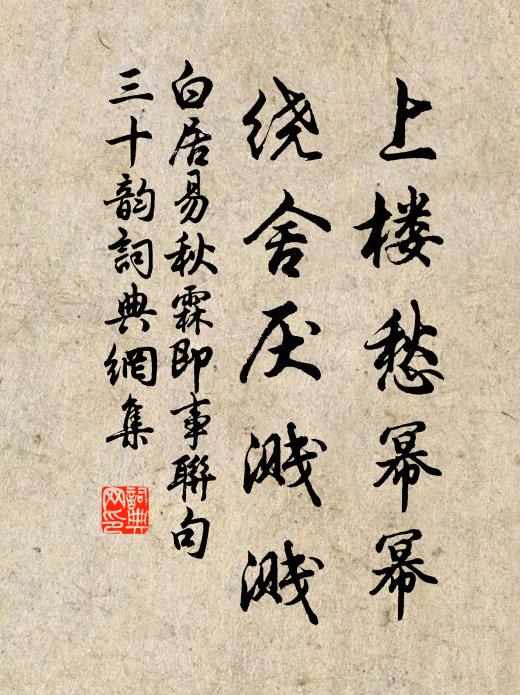 上楼愁幂幂
绕舍厌溅溅
白居易秋霖即事聯句
三十韵詞典網集
詞典
网印